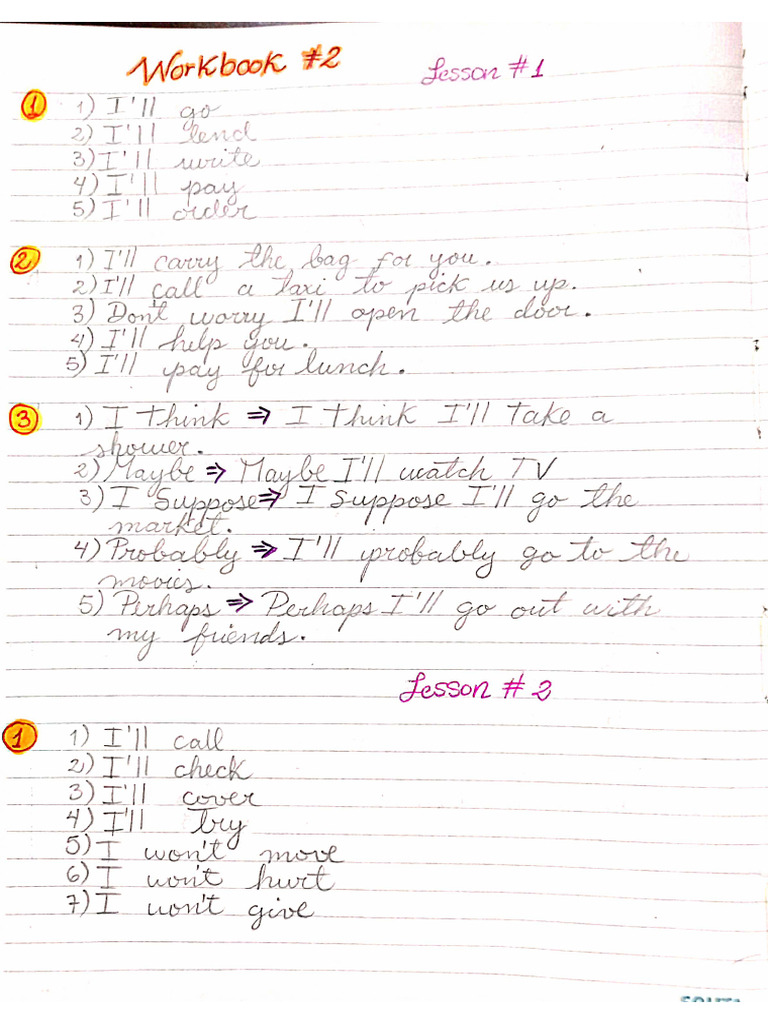 Workbook #2 Lesson #1
1 1) I'll go
2) I'll lend
3) I'll write
4) I'll pay
5) I'll order
2 1) I'll carry the bag for you.
2) I'll call a taxi to pick us up.
3) Don't worry I'll open the door.
4) I'll help you.
5) I'll pay for lunch.
3 1) I think ⇒ I think I'll take a
shower.
2) Maybe ⇒ Maybe I'll watch TV
3) I Suppose ⇒ I suppose I'll go the
market.
4) Probably ⇒ I'll probably go to the
movies.
5) Perhaps ⇒ Perhaps I'll go out with
my friends.
Lesson #2
1 1) I'll call
2) I'll check
3) I'll cover
4) I'll try
5) I won't move
6) I won't hurt
7) I won't give